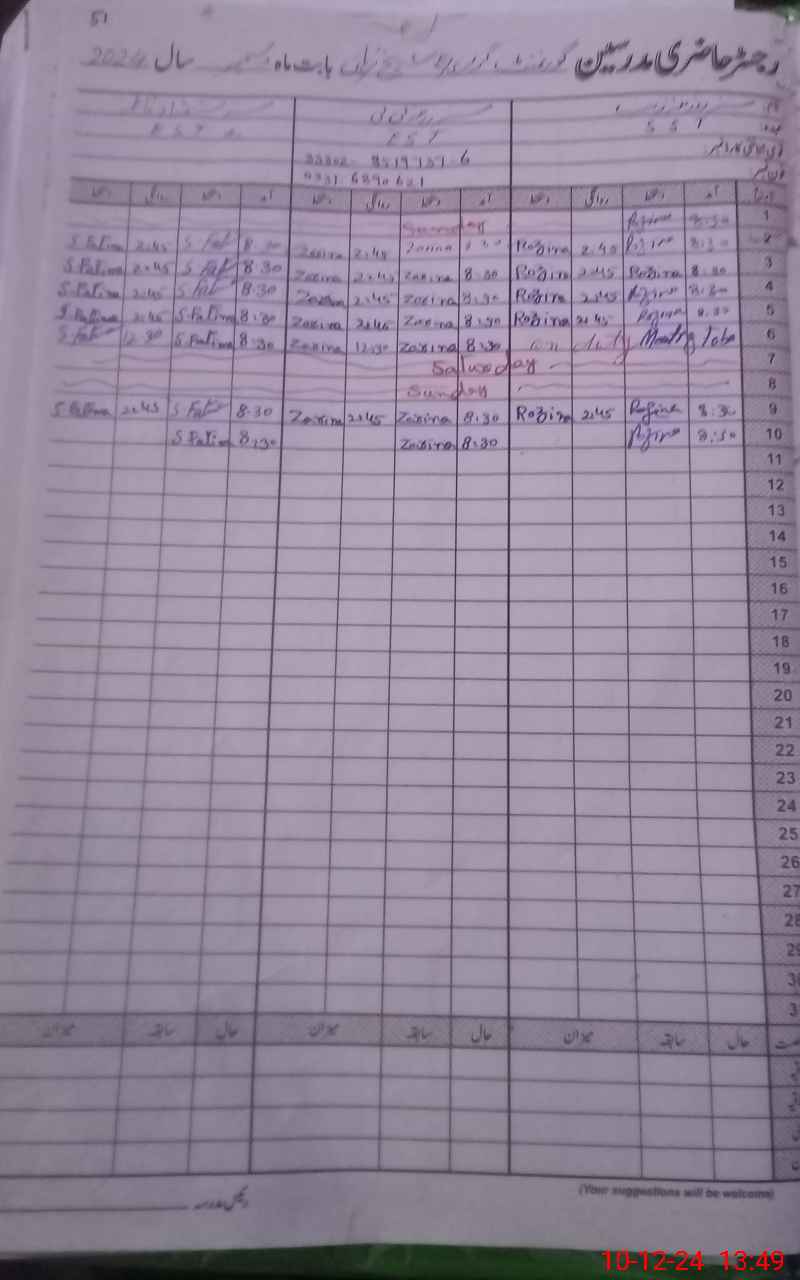 51
رجسٹر حاضری مدرسین گورنمنٹ بابت ماہ سال 2024
S S T
E S T
E S T
33302 8519137 6
0331 6890631
دستخط روانگی دستخط آمد دستخط روانگی دستخط آمد دستخط روانگی دستخط آمد
1 8:30 Rozina Sunday
2 8:30 Rozina 2:45 Rozina Zarina 2:45 Zarina 8:30 S Fat 2:45 S Fatima
3 8:30 Rozina 2:45 Rozina 8:30 Zarina 2:45 Zarina 8:30 S Fat 2:45 S Fatima
4 8:30 Rozina 2:45 Rozina 8:30 Zarina 2:45 Zarina 8:30 S Fat 2:45 S Fatima
5 8:30 Rozina 2:45 Rozina 8:30 Zarina 2:45 Zarina 8:30 S Fatima 2:45 S Fatima
6 on duty Meeting 8:30 Zarina 12:30 Zarina 8:30 S Fatima 12:30 S Fat
7 Saturday
8 Sunday
9 8:30 Rozina 2:45 Rozina 8:30 Zarina 2:45 Zarina 8:30 S Fat 2:45 S Fatima
10 8:30 Rozina 8:30 Zarina 8:30 S Fatima
11
12
13
14
15
16
17
18
19
20
21
22
23
24
25
26
27
28
29
3
3
حال سابقہ میزان حال سابقہ میزان حال سابقہ میزان
(Your suggestions will be welcome)
10-12-24 13:49